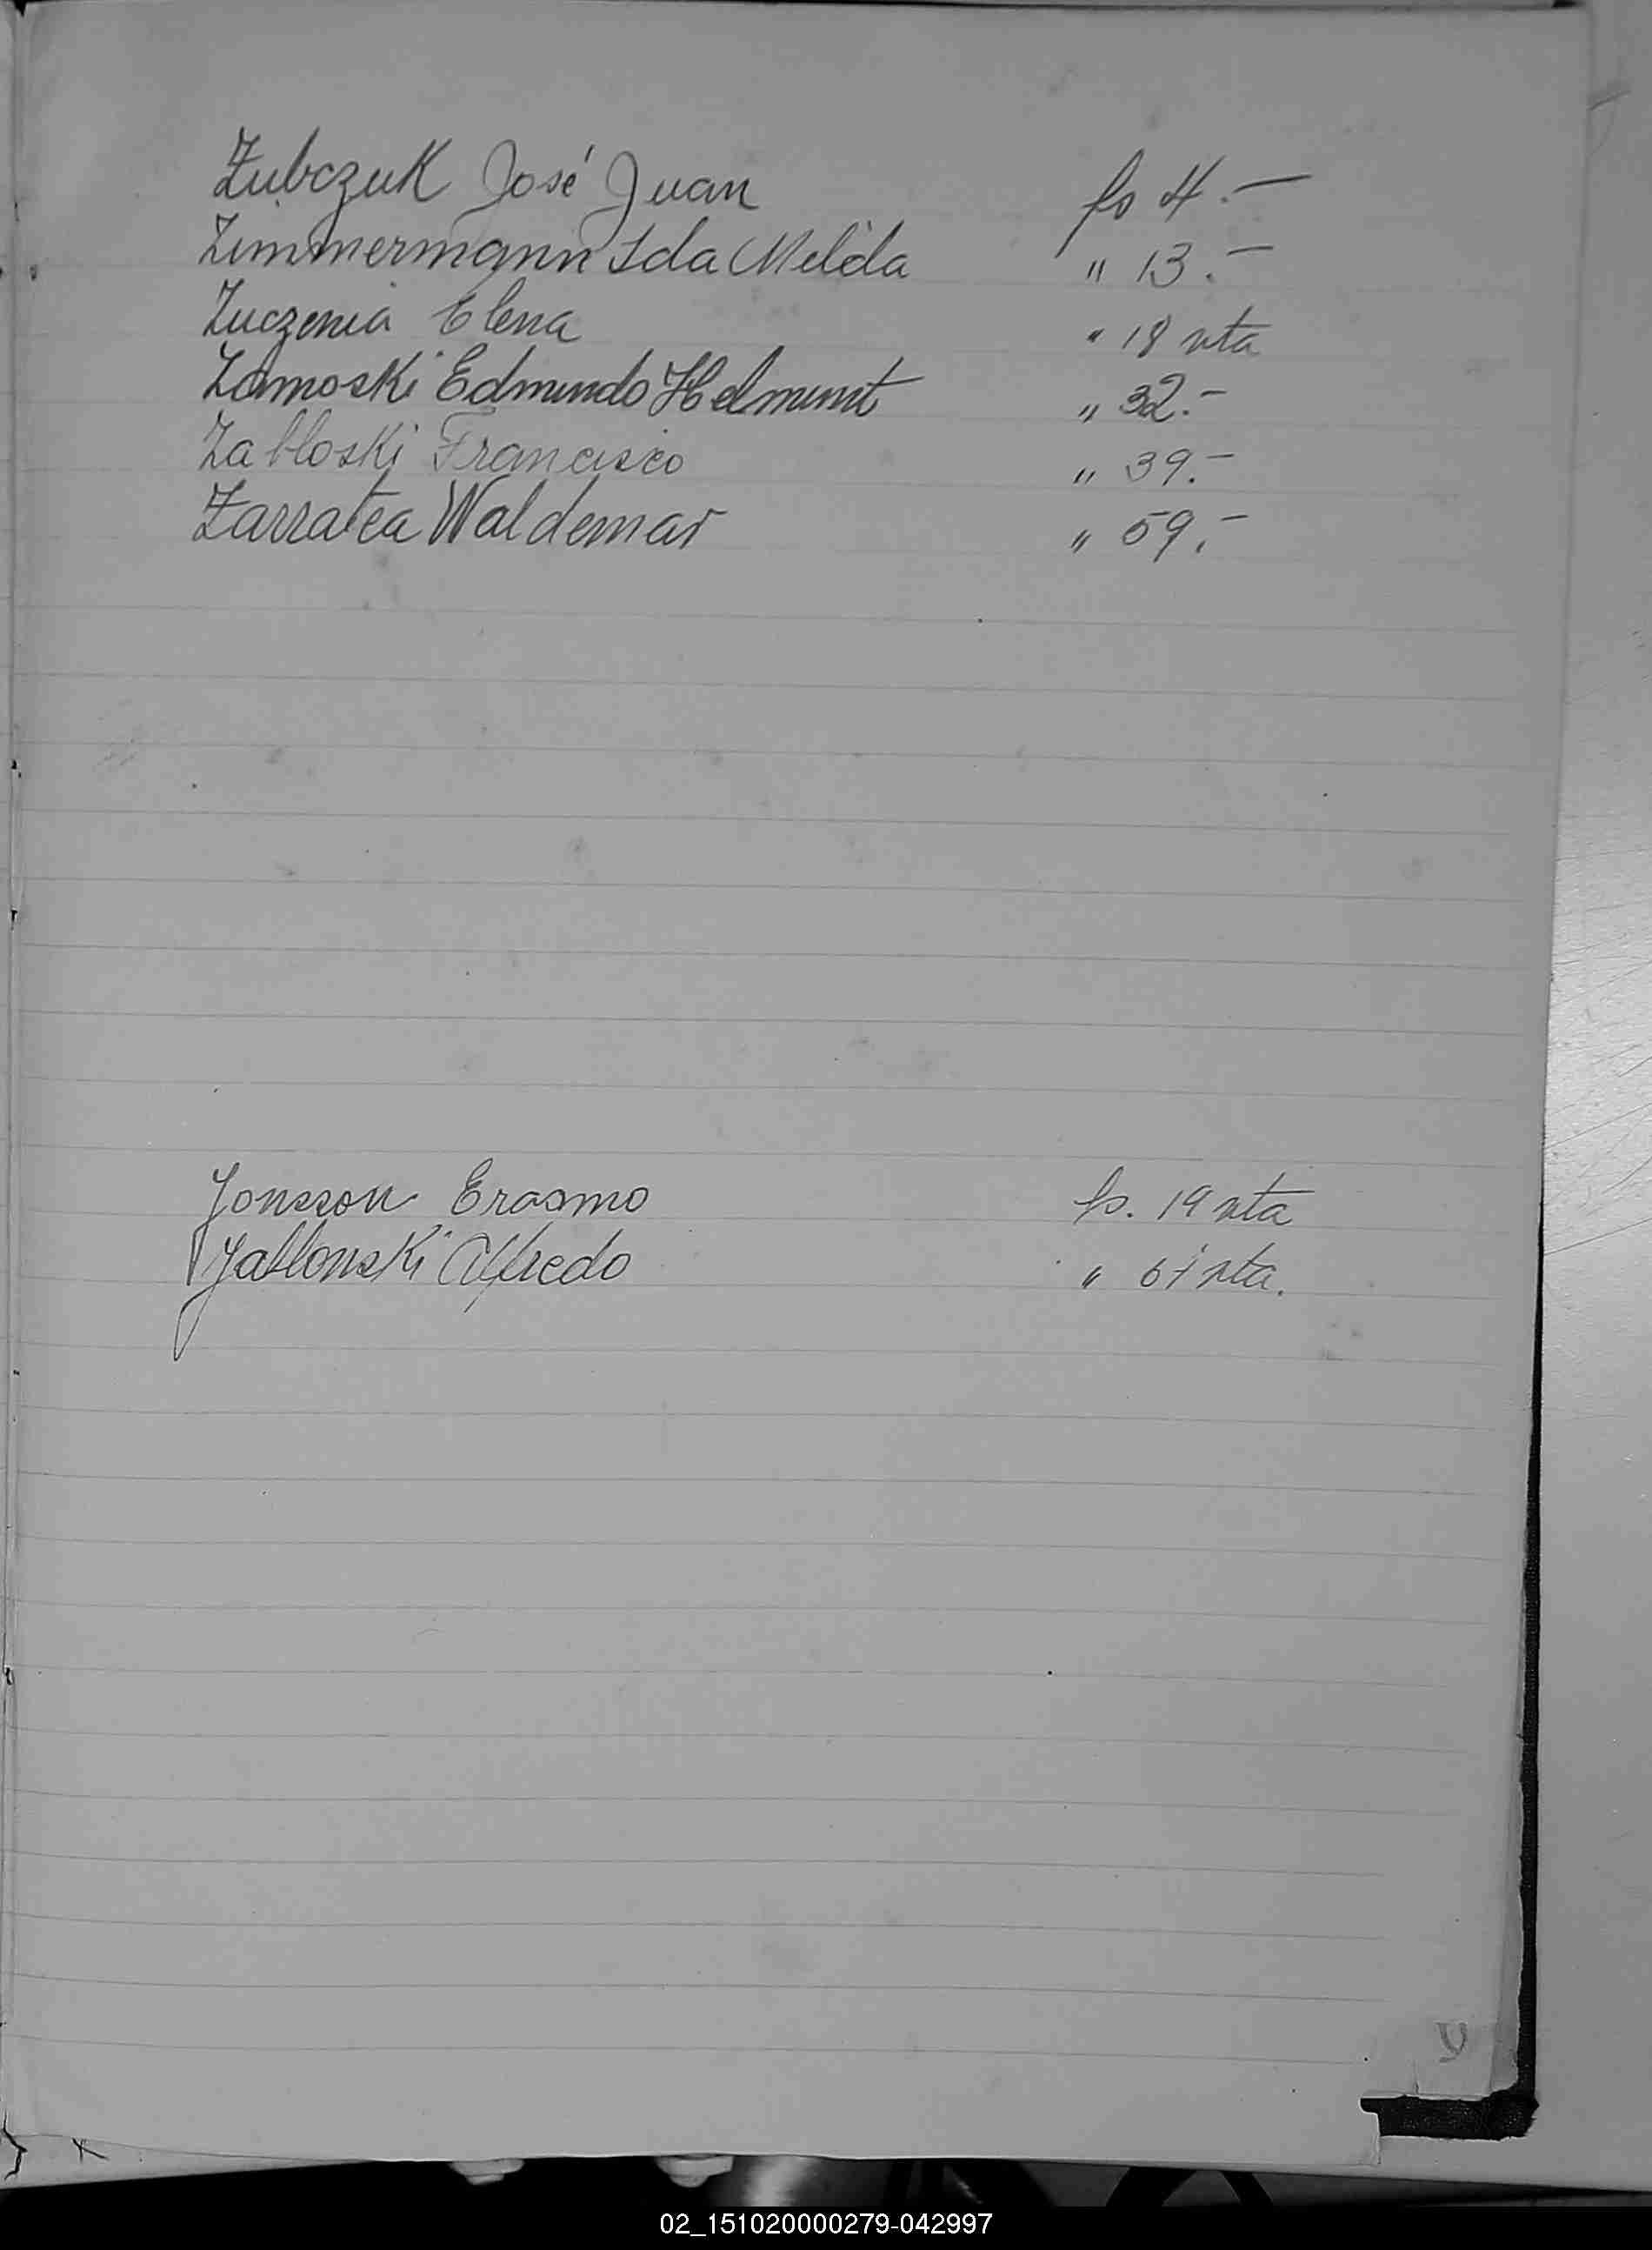 Zubczuk José Juan fs 4.—
Zimmermann Ida Melida " 13.—
Zuczenia Elena " 18 vta
Zamoski Edmundo Helmunt " 32.—
Zabloski Francisco " 39.—
Zarratea Waldemar " 59.—
Jonsson Erasmo fs. 19 vta
Jablonski Alfredo " 61 vta.
Y
02_151020000279-042997